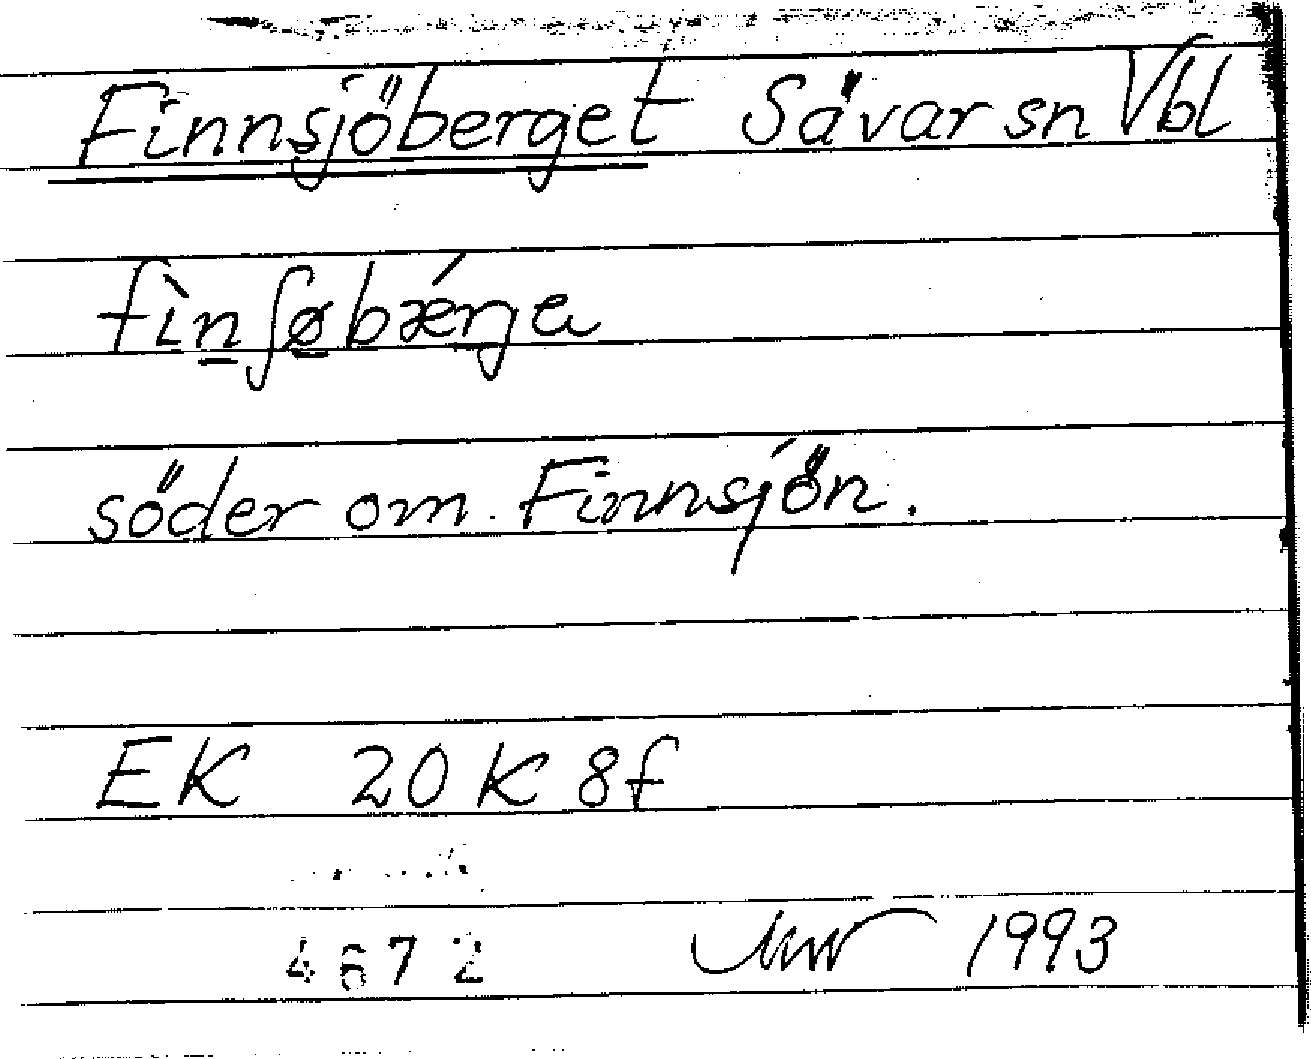 Finnsjöberget Sävar sn Vbl
fìnʃøbǽrja
söder om Finnsjön.
EK 20K 8f
4672 1993